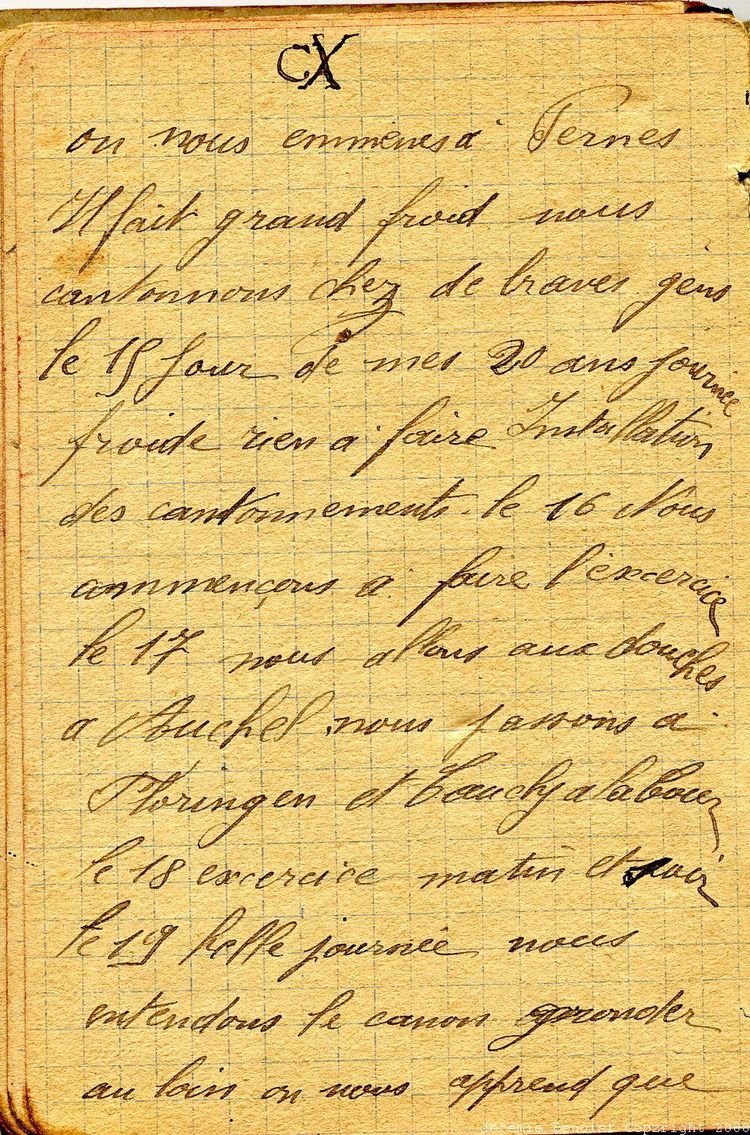 CX
on nous emmenes a Pernes
Il fait grand froid nous
cantonnons chez de braves gens
le 15 Jour de mes 20 ans journée
froide rien a faire Installation
des cantonnements. le 16 Nous
commençons a faire l'excercice
le 17 nous allons aux douches
a Auchel nous passons a
Floringen et Cauchyalatour
le 18 excercice matin et soir
le 19 belle journée nous
entendons le canon gronder
au loin on nous apprend que
Jeremie Benoist Copyright 2006